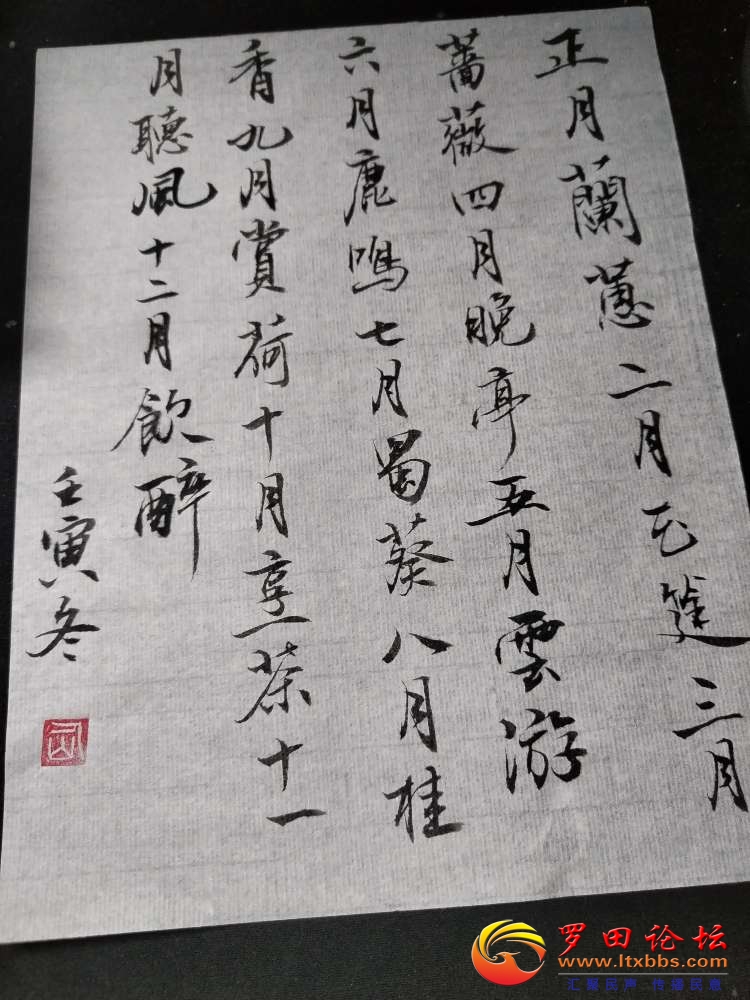 正月蘭蕙二月花筵三月
薔薇四月晚亭五月雲游
六月鹿鳴七月蜀葵八月桂
香九月賞荷十月烹茶十一
月聽風十二月飲醉
壬寅冬
罗田论坛
www.ltxbbs.com